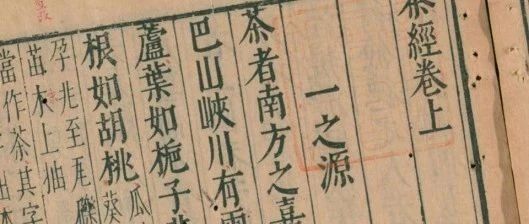 茶經卷上
一之源
茶者南方之嘉
巴山峽川有
蘆葉如梔子
根如胡桃
瓜
孕兆至瓦礫
苗木上抽
當作茶其字